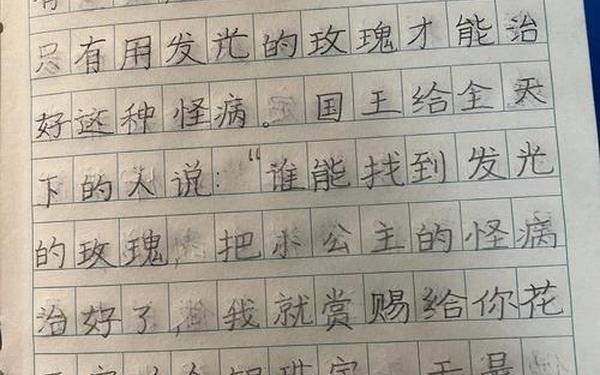 只有用发光的玫瑰才能治
好这种怪病。国王给全天
下的人说：“谁能找到发光
的玫瑰，把小公主的怪病
治好了，我就赏赐给你花